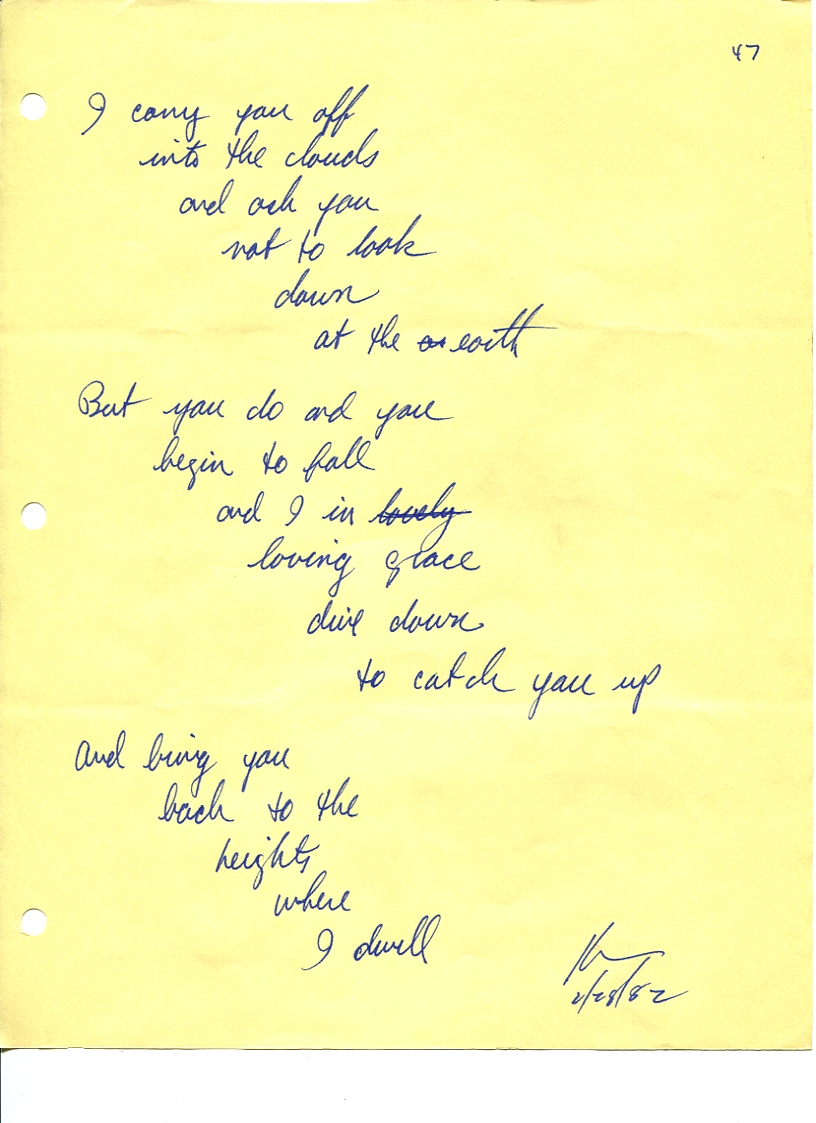 47
I carry you off
into the clouds
and ask you
not to look
down
at the earth
But you do and you
begin to fall
and I in lovely
loving grace
dive down
to catch you up
And bring you
back to the
heights
where
I dwell
2/28/82